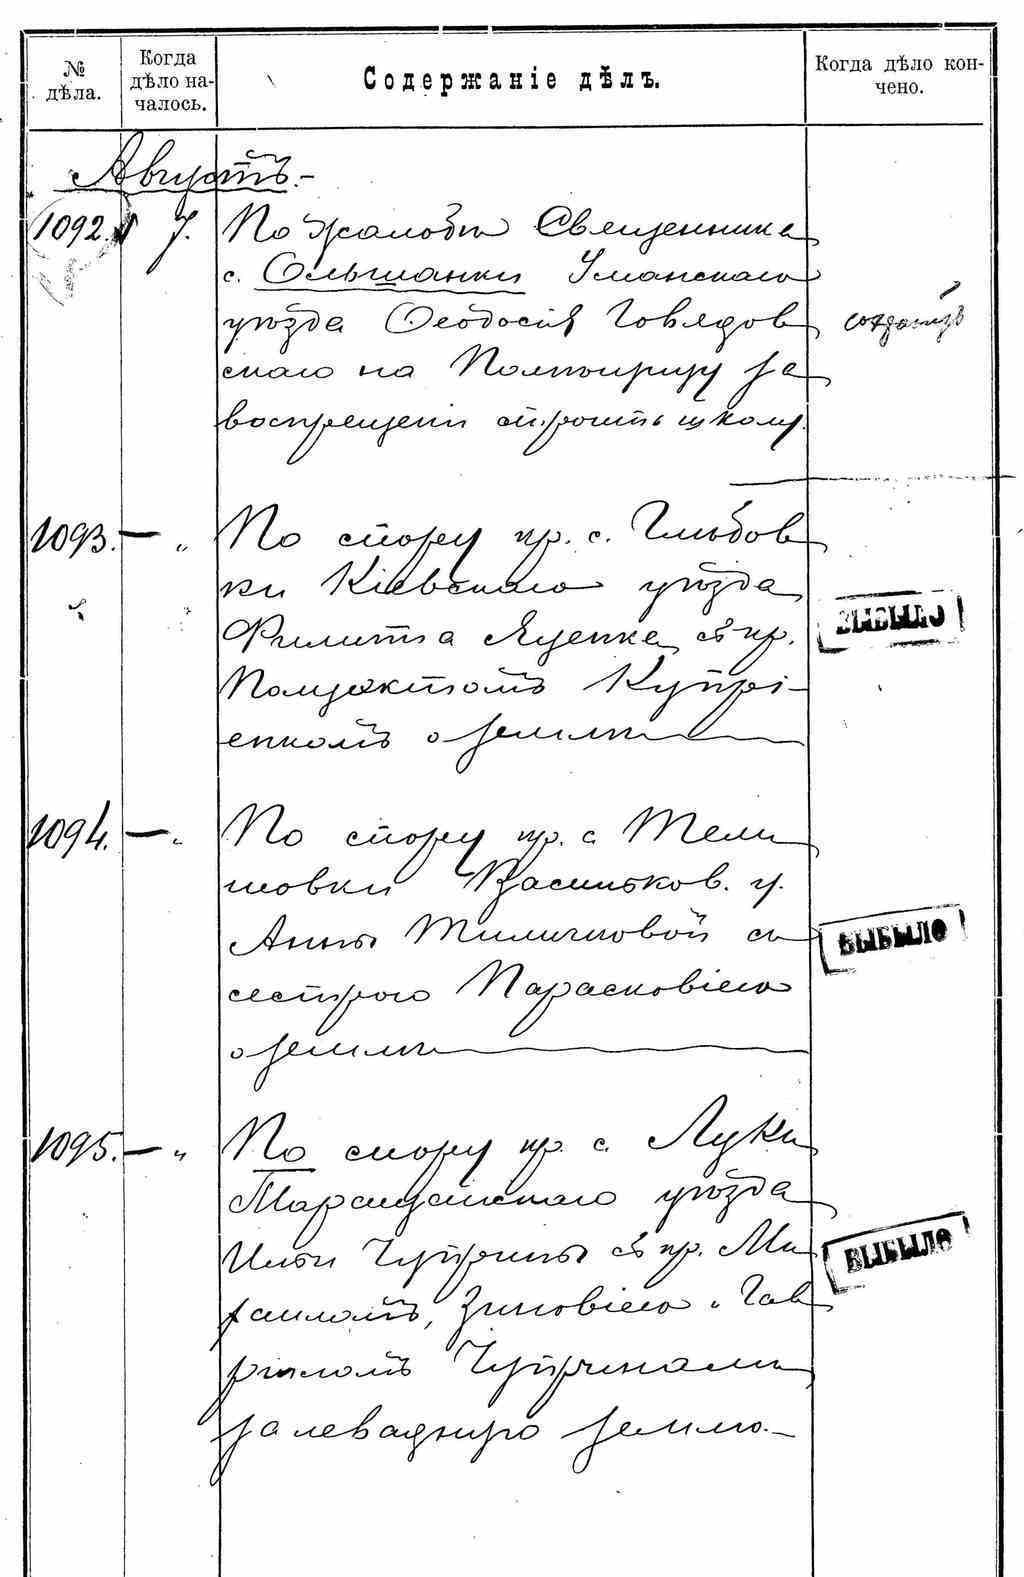 № дѣла.
Когда дѣло началось.
Содержаніе дѣлъ.
Когда дѣло кончено.
Августъ.-
1092. 7. По жалобѣ Священника
с. Ольшанки Уманскаго
уѣзда Ѳеодосія Говядов
скаго на Помѣщицу за
воспрещеніи строить школу.
1093. — „ По спору кр. с. Глѣбов
ки Кіевскаго уѣзда
Филиппа Яценка съ кр.
Полуектомъ Купрі-
енкомъ о землѣ
ВЫБЫЛО
1094. — „ По спору кр. с. Тели
шовки Васильков. у.
Анны съ
сестрою Парасковіею
о землѣ
ВЫБЫЛО
1095. — „ По спору кр. с. Луки
Таращанскаго уѣзда
Ильи Чуприны съ кр. Ми
хаиломъ, Зиновіею и Гав
риломъ Чупринами
за левадную землю.-
ВЫБЫЛО